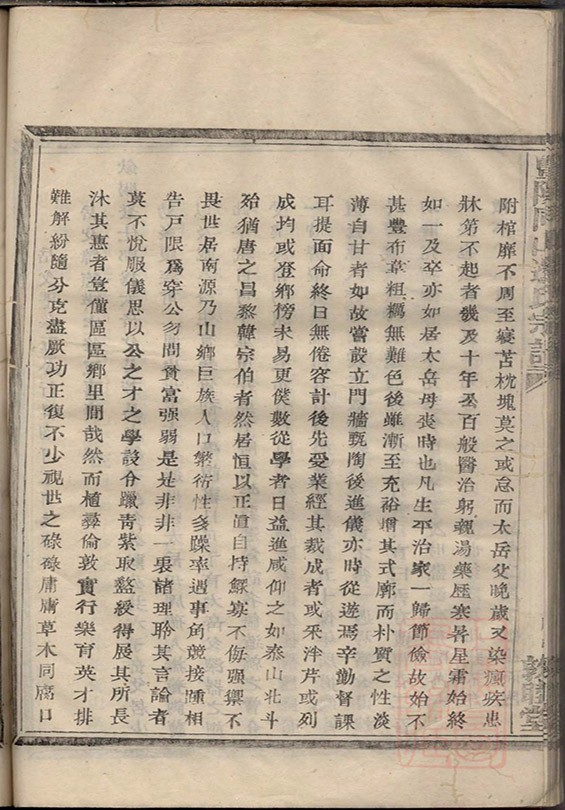 附棺靡不周至寢苫枕塊莫之或怠而太岳父晚歲又染癱疾患
牀第不起者幾及十年公百般醫治躬親湯藥歷寒暑星霜始終
如一及卒亦如居太岳母喪時也凡生平治家一歸節儉故始不
甚豐布韋粗糲無難色後雖漸至充裕增其式廓而朴質之性淡
薄自甘者如故當設立門牆甄陶後進儀亦時從遊焉辛勤督課
耳提面命終日無倦容計後先受業經其裁成者或釆泮芹或列
成均或登鄉榜未易更僕數從學者日益進咸仰之如泰山北斗
殆猶唐之昌黎韓宗伯者然居恒以正直自持鰥寡不侮强禦不
畏世居南源乃山鄉巨族人口繁衍性多躁率遇事角競接踵相
告戶限爲穿公勿問貧富强弱是是非非一衷諸理聆其言論者
莫不悅服儀思以公之才之學設令獵青紫取盤綬得展其所長
沐其惠者豈僅區區鄉里間哉然而植尋倫敦實行樂育英才排
難解紛隨分克盡厥功正復不少視世之碌碌庸庸草木同腐口
宗譜
敦睦堂